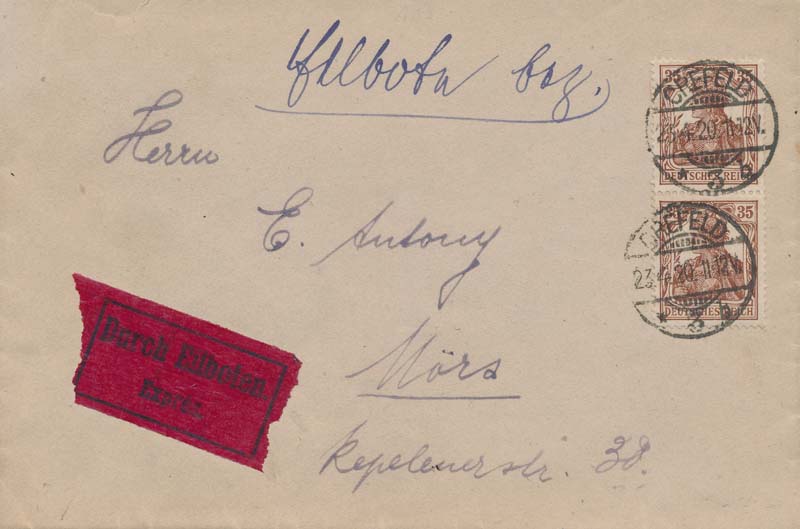 Eilbote bez.
Herrn
E. Antony
Mörs
Repelenerstr. 38.
Durch Eilboten
Expres.
35 35
CREFELD
23.4.20.11-12V.
* 3 b
DEUTSCHES REICH
35
CREFELD
23.4.20.11-12V.
* 3 b
DEUTSCHES REICH